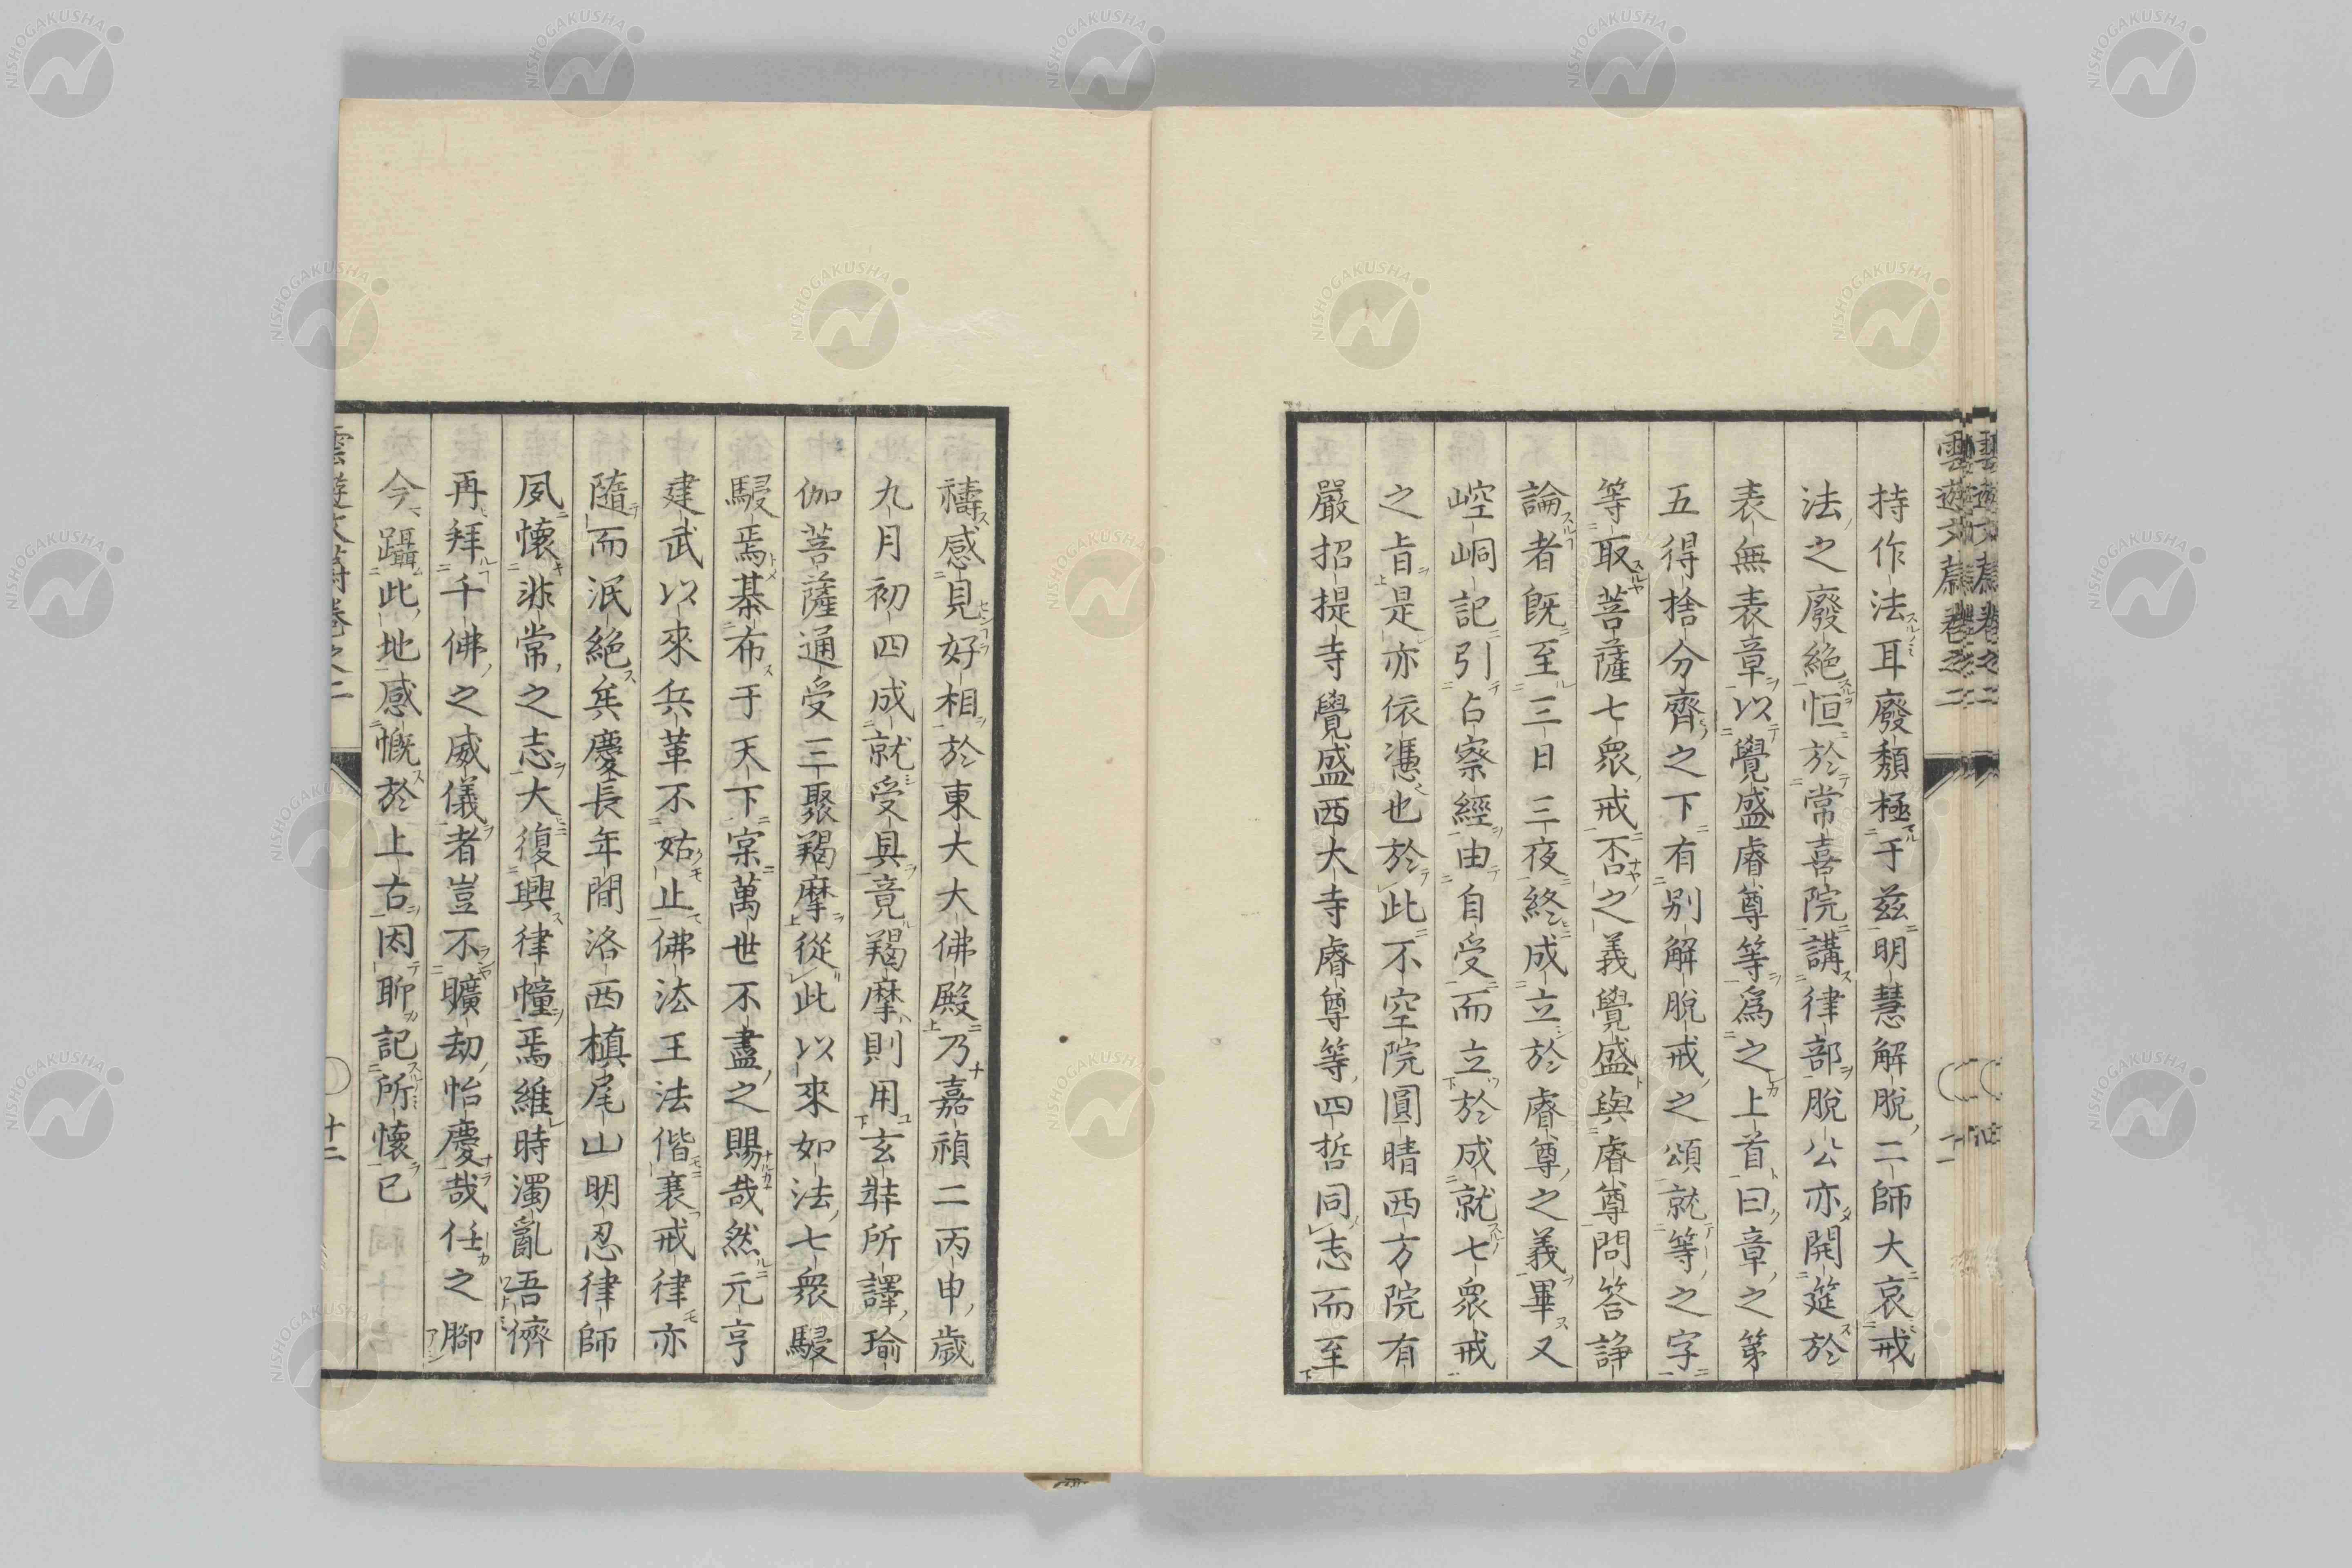 持作法耳廢頽極于兹明慧解脱二師大哀戒
法之廢絶恒於常喜院講律部脱公亦開筵於
表無表章以覺盛睿尊等爲之上首曰章之第
五得捨分齊之下有別解脱戒之頌就等之字
等取菩薩七衆戒否之義覺盛與睿尊問答諍
論者既至三日三夜終成立於睿尊之義畢又
崆峒記引占察經由自受而立於成就七衆戒
之旨是亦依憑也於此不空院圓晴西方院有
嚴招提寺覺盛西大寺睿尊等四哲同志而至
禱感見好相於東大大佛殿乃嘉禎二丙申歳
九月初四成就受具竟羯摩則用玄奘所譯瑜
伽菩薩通受三聚羯摩從此以來如法七衆駸
駸焉棊布于天下寔萬世不盡之賜哉然元亨
建武以來兵革不姑止佛法王法偕衰戒律亦
隨而泯絶矣慶長年間洛西槙尾山明忍律師
夙懷非常之志大復興律幢焉維時濁亂吾儕
再拜千佛之威儀者豈不曠劫怡慶哉任之脚
今躡此地感慨於上古因聊記所懷已
雲遊文蔚卷之二
十二
NISHOGAKUSHA